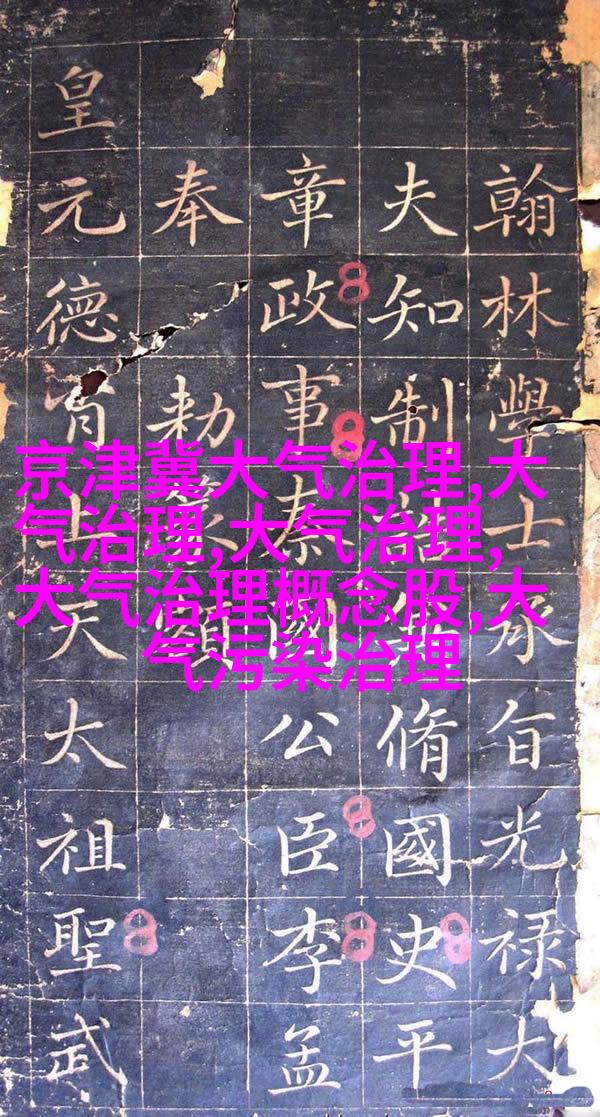 京津冀大气治理,大
气治理,大气治理,
大气治理概念股,大
气污染治理
翰林學士承旨光禄大
夫知制脩國史平
章政事秦國公臣李孟
奉勅篆額
皇元德上天太祖聖武